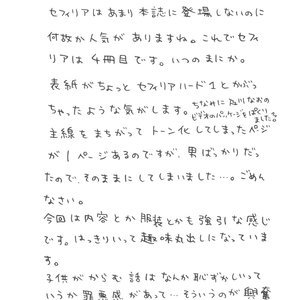 セフィリアはあまり本誌に登場しないのに
何故か人気がありますね。これでセフィ
リアは4冊目です。いつのまにか。
表紙がちょっとセフィリアハード1とかぶっ
ちゃったような気がします。ちなみに及川なおの
ビデオのパッケージをぱくりました。
主線をまちがってトーン化してしまったページ
が1ページあるのですが、男ばっかりだっ
たので、そのままにしてしまいました…。ごめん
なさい。
今回は内容とか服装とかも強引な感じ
です。はっきりいって趣味丸出しになっていま
す。
子供がからむ話はなんか恥ずかしいって
いうか罪悪感があって…そういうのが興奮